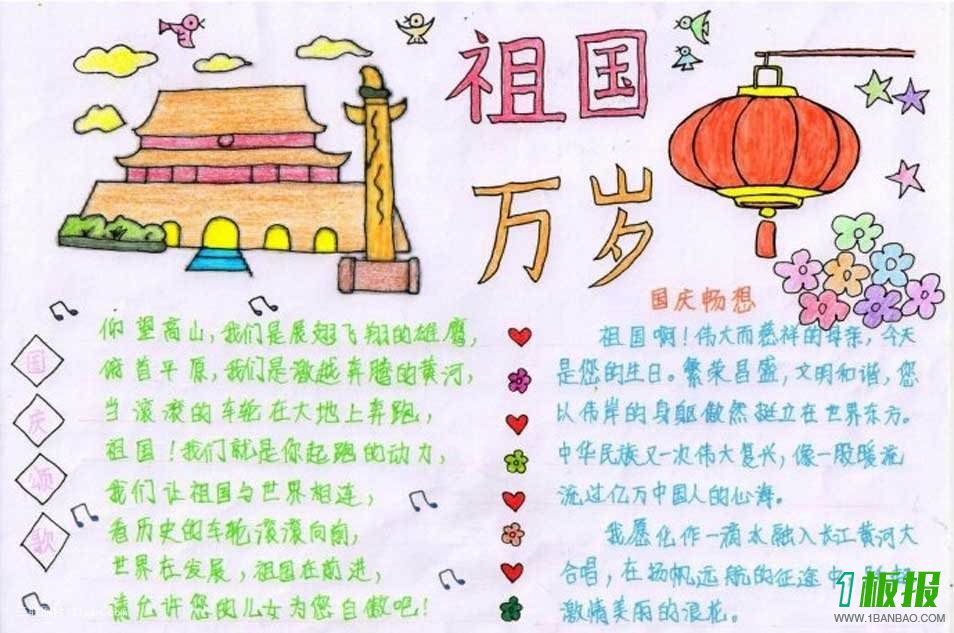 祖国
万岁
国庆颂歌
仰望高山,我们是展翅飞翔的雄鹰,
俯首平原,我们是激越奔腾的黄河,
当滚滚的车轮在大地上奔跑,
祖国!我们就是你起跑的动力,
我们让祖国与世界相连,
看历史的车轮滚滚向前,
世界在发展,祖国在前进,
请允许您的儿女为您自傲吧!
国庆畅想
祖国啊!伟大而慈祥的母亲,今天
是您的生日。繁荣昌盛,文明和谐,您
以伟岸的身躯傲然挺立在世界东方。
中华民族又一次伟大复兴,像一股暖流
流过亿万中国人的心海。
我愿化作一滴水融入长江黄河大
合唱,在扬帆远航的征途中
激情美丽的浪花。
1板报
WWW.1BANBAO.COM